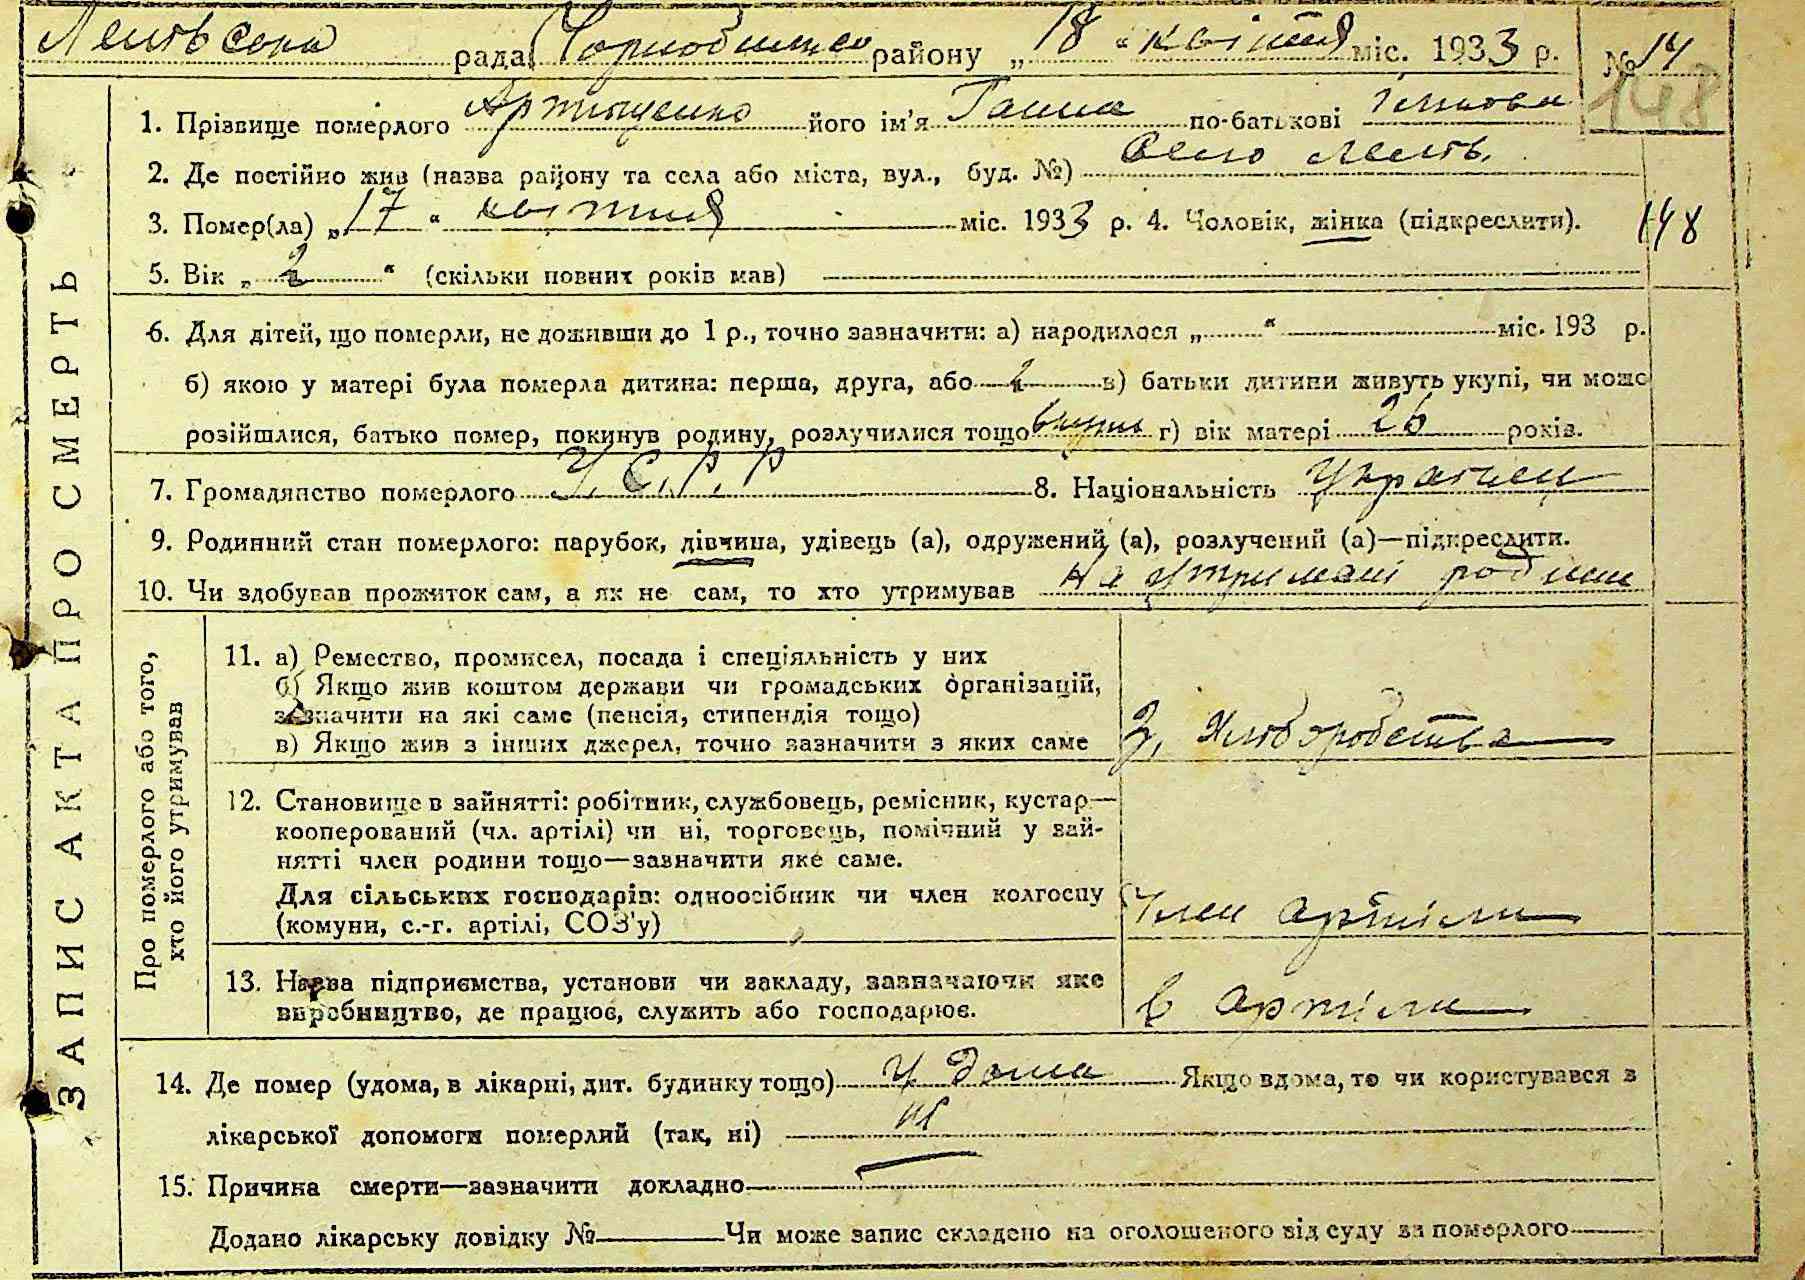 рада Чорнобильськ району „ 18 “ квітня міс. 1933 р. № 14
148
1. Прізвище померлого Артющенко його ім'я Ганна по-батькові
2. Де постійно жив (назва району та села або міста, вул., буд. №) Село Лелів.
3. Помер(ла) „ 17 “ квітня міс. 1933 р. 4. Чоловік, жінка (підкреслити). 148
5. Вік „ 2 “ (скільки повних років мав)
6. Для дітей, що померли, не доживши до 1 р., точно зазначити: а) народилося „ “ міс. 193 р.
б) якою у матері була померла дитина: перша, друга, або 2 в) батьки дитини живуть укупі, чи може
розійшлися, батько помер, покинув родину, розлучилися тощо вкупі г) вік матері 26 років.
7. Громадянство померлого У. С. Р. Р 8. Національність Украінец
9. Родинний стан померлого: парубок, дівчина, удівець (а), одружений (а), розлучений (а)—підкреслити.
10. Чи здобував прожиток сам, а як не сам, то хто утримував на утримані родини
ЗАПИС АКТА ПРО СМЕРТЬ
Про померлого або того,
хто його утримував
11. а) Ремество, промисел, посада і спеціяльність у них
б) Якщо жив коштом держави чи громадських організацій,
зазначити на які саме (пенсія, стипендія тощо)
в) Якщо жив з інших джерел, точно зазначити з яких саме
З, Хліборобства
12. Становище в зайнятті: робітник, службовець, ремісник, кустар—
кооперований (чл. артілі) чи ні, торговець, помічний у зай-
нятті член родини тощо—зазначити яке саме.
Для сільських господарів: одноосібник чи член колгоспу
(комуни, с.-г. артілі, СОЗ'у)
Член артіли
13. Назва підприємства, установи чи закладу, зазначаючи яке
виробництво, де працює, служить або господарює.
в артіли
14. Де помер (удома, в лікарні, дит. будинку тощо) У дома Якщо вдома, то чи користувався з
лікарської допомоги померлий (так, ні) ні
15. Причина смерти—зазначити докладно
Додано лікарську довідку № Чи може запис складено на оголошеного від суду за померлого